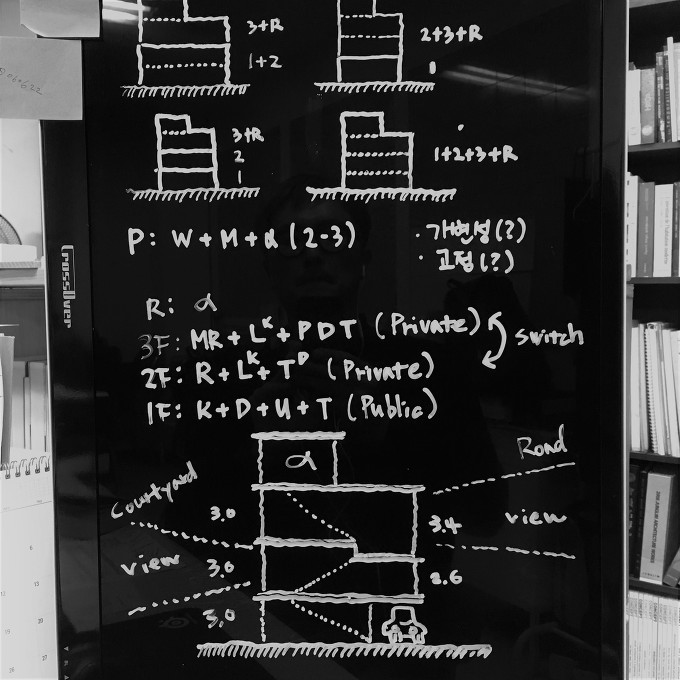 3+R
1+2
2+3+R
1
3+R
2
1
1+2+3+R
P: W + M + α (2-3)
· 가변성(?)
· 고정(?)
R: α
3F: MR + L^K + P D T (Private)
switch
2F: R + L^K + T^D (Private)
1F: K + D + U + T (Public)
α
Road
view
Courtyard
view
3.0
3.4
3.0
2.6
3.0
Crossliver